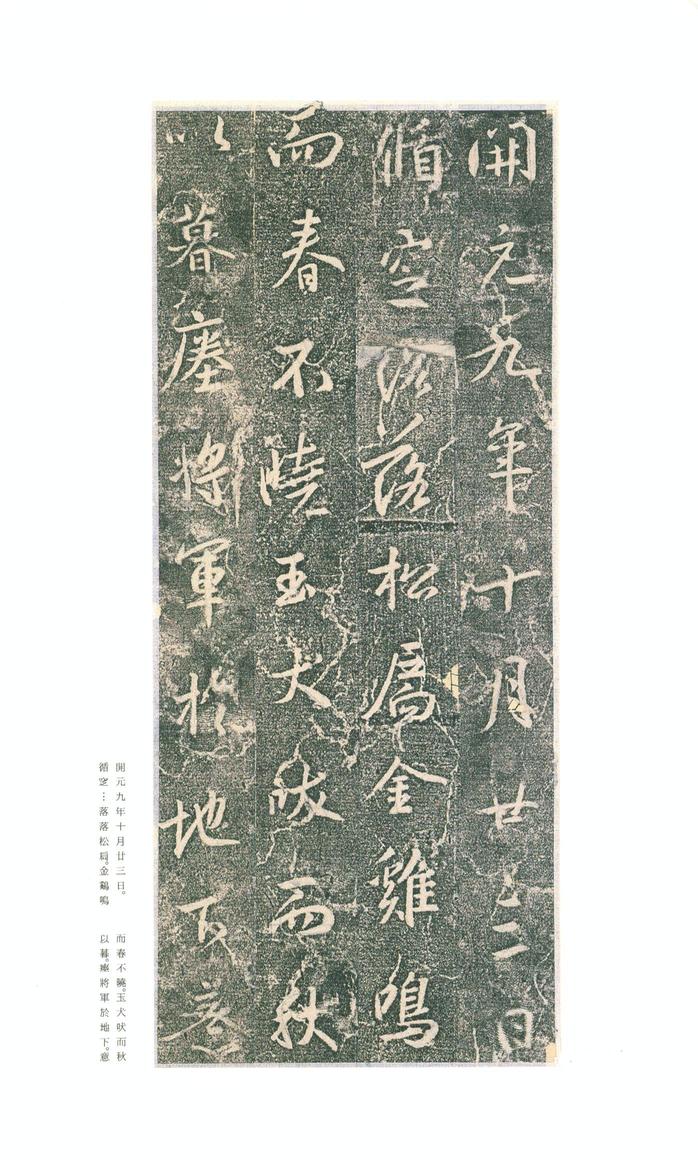 開元九年十月廿三日
循空落落松扃金雞鳴
而春不曉玉犬吠而秋
以暮瘞將軍於地下意
開元九年十月廿三日。
循空…落落松扃。金鷄鳴
而春不曉。玉犬吠而秋
以暮。瘞將軍於地下。意